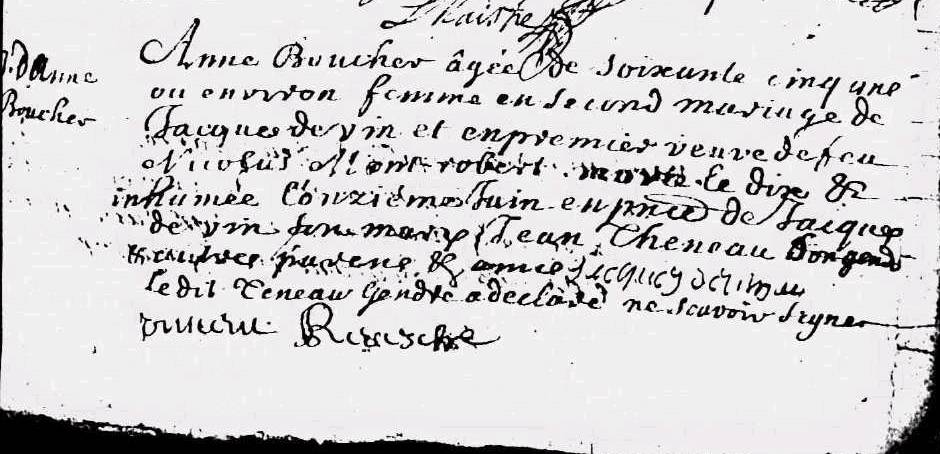 D. d'Anne
Boucher
Anne Boucher âgée de soixante cinq ans
ou environ femme en second mariage de
Jacques de vin et en premier veuve de feu
Nicolas Mont robert morte le dix &
inhumée l'onzieme Juin en pnce de Jacques
de vin son mary Jean Theneau son gendre
& autres parens & amis jacques devin
le dit Teneau Gendre a declaré ne scavoir signer